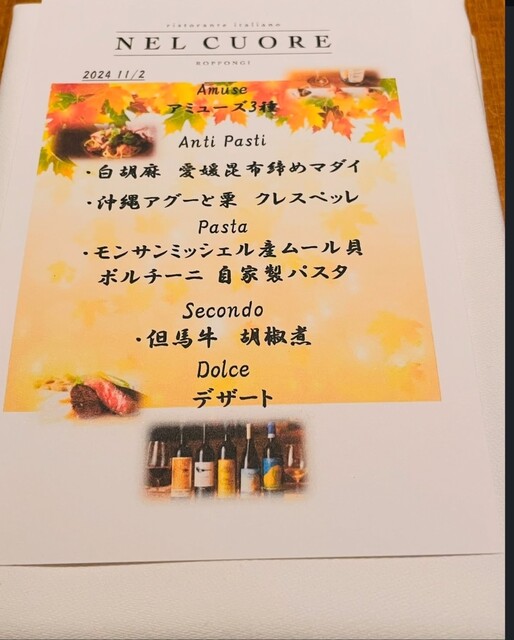 ristorante italiano
NEL CUORE
ROPPONGI
2024 11/2
Amuse
アミューズ3種
Anti Pasti
・白胡麻 愛媛昆布締めマダイ
・沖縄アグーと栗 クレスペッレ
Pasta
・モンサンミッシェル産ムール貝
ポルチーニ 自家製パスタ
Secondo
・但馬牛 胡椒煮
Dolce
デザート